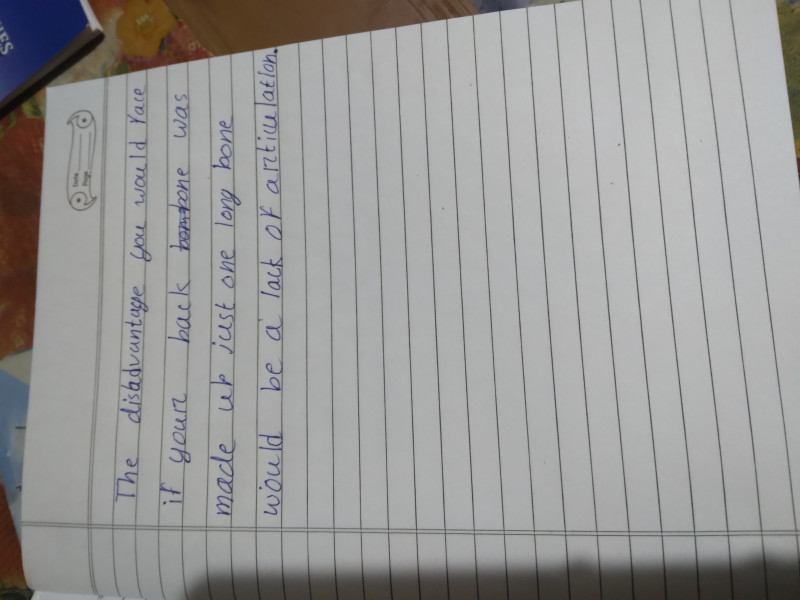 Date
Page
The disadvantage you would face
if your back bone was
made up just one long bone
would be a lack of articulation.